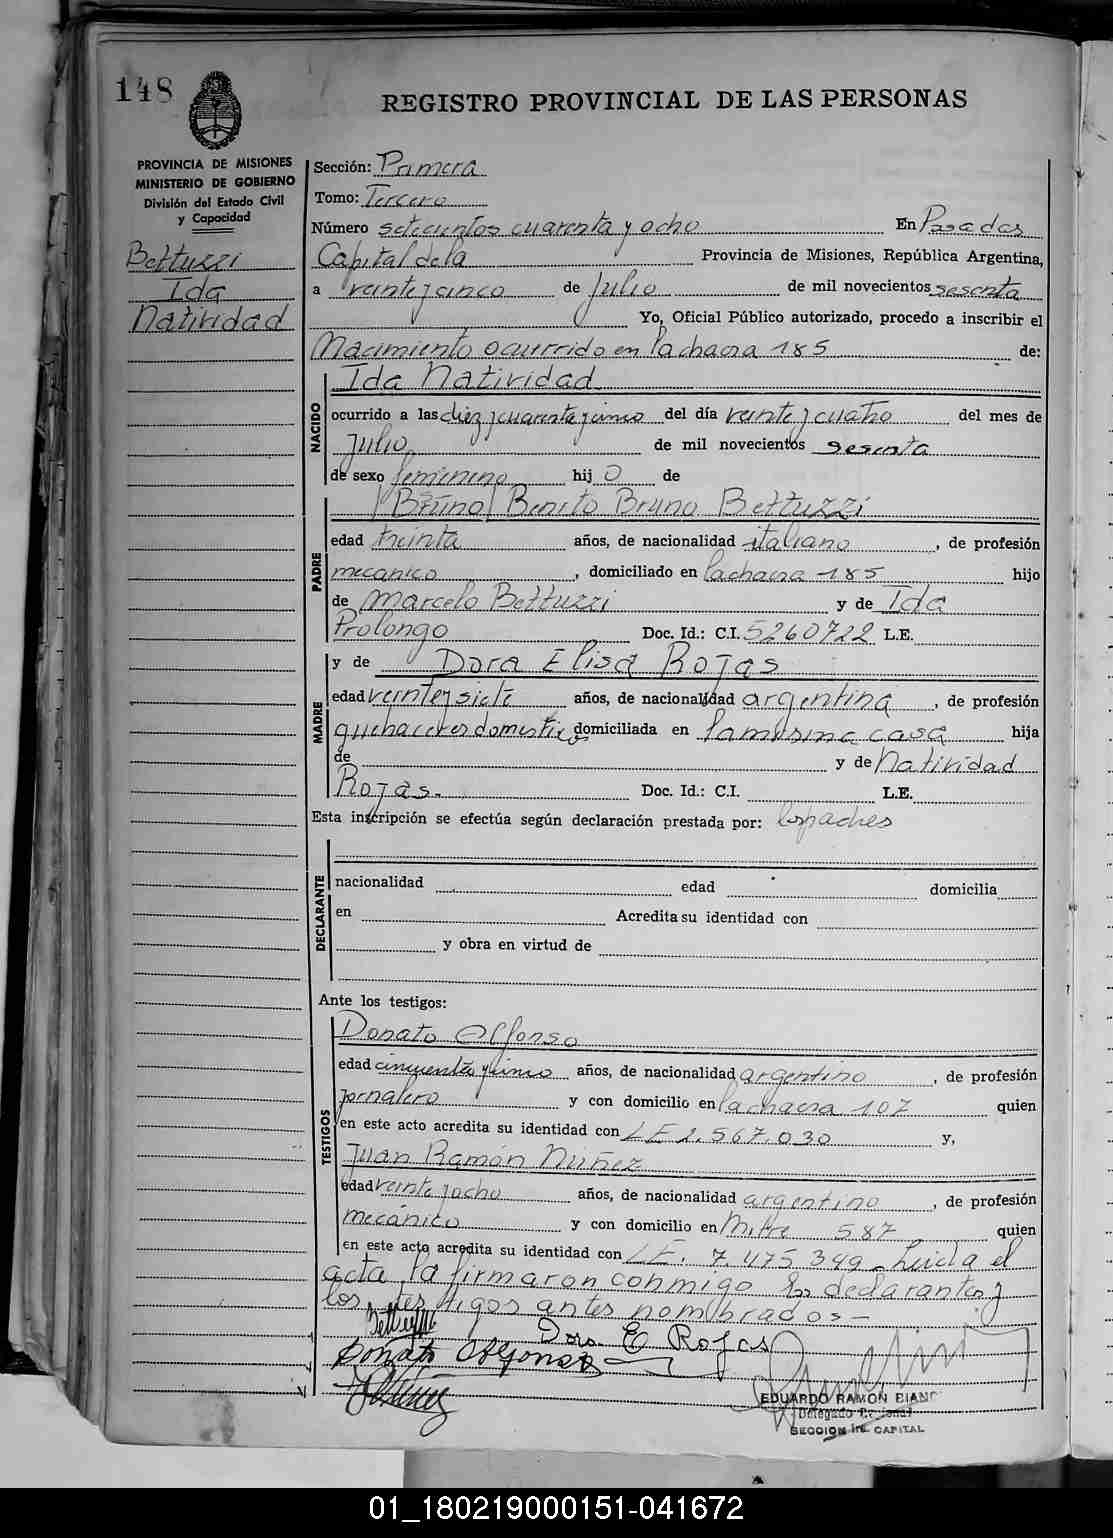 148
REGISTRO PROVINCIAL DE LAS PERSONAS
PROVINCIA DE MISIONES
MINISTERIO DE GOBIERNO
División del Estado Civil
y Capacidad
Bettuzzi
Ida
Natividad
Sección: Primera
Tomo: Tercero
Número setecientos cuarenta y ocho En Posadas
Capital de la Provincia de Misiones, República Argentina,
a veinte y cinco de Julio de mil novecientos sesenta
Yo, Oficial Público autorizado, procedo a inscribir el
Nacimiento ocurrido en la chacra 185 de:
NACIDO
Ida Natividad
ocurrido a las diez y cuarenta y cinco del día veinte y cuatro del mes de
Julio de mil novecientos sesenta
de sexo femenino hij o de
PADRE
Bruno Benito Bruno Bettuzzi
edad treinta años, de nacionalidad italiano, de profesión
mecanico, domiciliado en la chacra 185 hijo
de Marcelo Bettuzzi y de Ida
Prolongo Doc. Id.: C.I. 5260722 L.E.
MADRE
y de Dora Elisa Rojas
edad veinte y siete años, de nacionalidad argentina, de profesión
quehaceres domesticos domiciliada en la misma casa hija
de y de Natividad
Rojas.- Doc. Id.: C.I. L.E.
Esta inscripción se efectúa según declaración prestada por: los padres
DECLARANTE
nacionalidad edad domicilia
en Acredita su identidad con
y obra en virtud de
Ante los testigos:
TESTIGOS
Donato Alfonso
edad cincuenta y cinco años, de nacionalidad argentino, de profesión
jornalero y con domicilio en la chacra 107 quien
en este acto acredita su identidad con LE 2.567.030 y,
Juan Ramón Núñez
edad veinte y ocho años, de nacionalidad argentino, de profesión
mecánico y con domicilio en Mitre 587 quien
en este acto acredita su identidad con LE. 7.475.349 - Leida el
acta, la firmaron conmigo los declarantes y
los testigos antes nombrados -
Dora E Rojas
Donato Alfonso
EDUARDO RAMON BIANC
Delegado
SECCION 1ra. CAPITAL
01_180219000151-041672